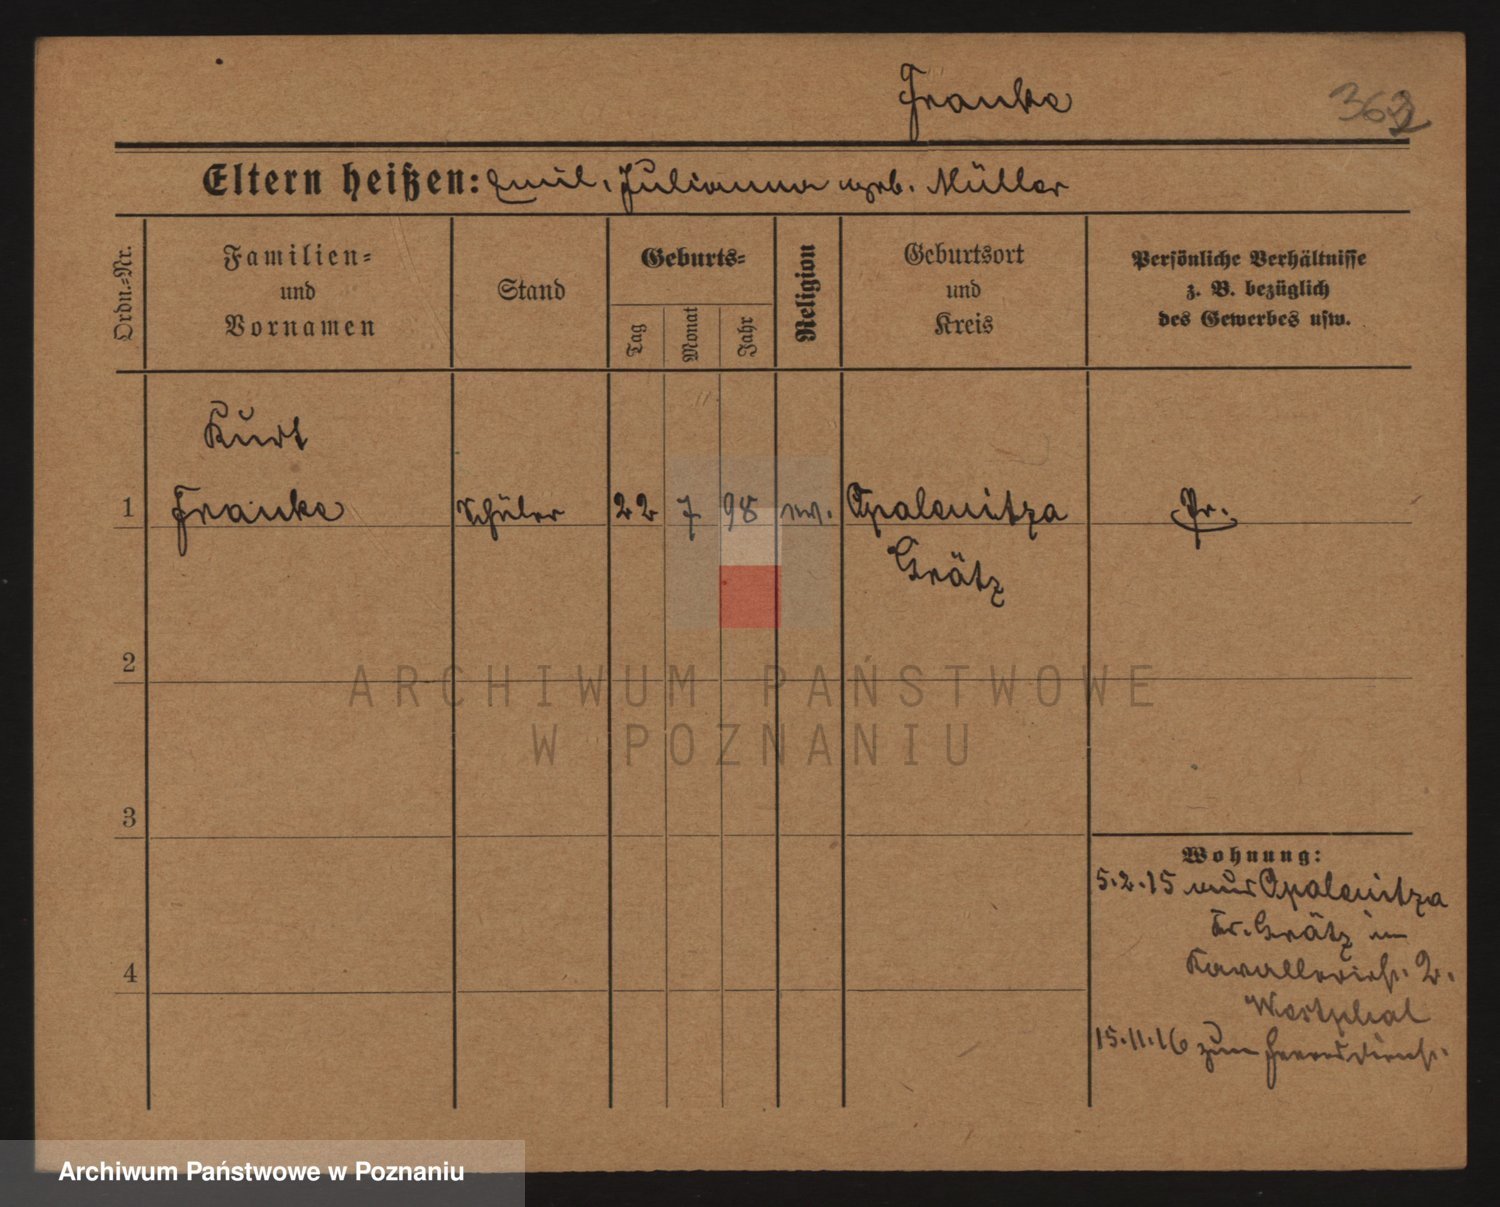 Franke 362
Eltern heißen: Emil. Julianna geb. Müller
Ordn.-Nr.
Familien-
und
Vornamen
Stand
Geburts-
Tag
Monat
Jahr
Religion
Geburtsort
und
Kreis
Persönliche Verhältnisse
z. B. bezüglich
des Gewerbes usw.
Kurt
1 Franke Schüler 22 7 98 ev. Opalenitza Pr.
Grätz
2
ARCHIWUM PAŃSTWOWE
W POZNANIU
3
Wohnung:
5.2.15 aus Opalenitza
Kr. Grätz in
4 Kavalleriestr. 2.
Westphal
15.11.16 zum Heeresdienst.
Archiwum Państwowe w Poznaniu